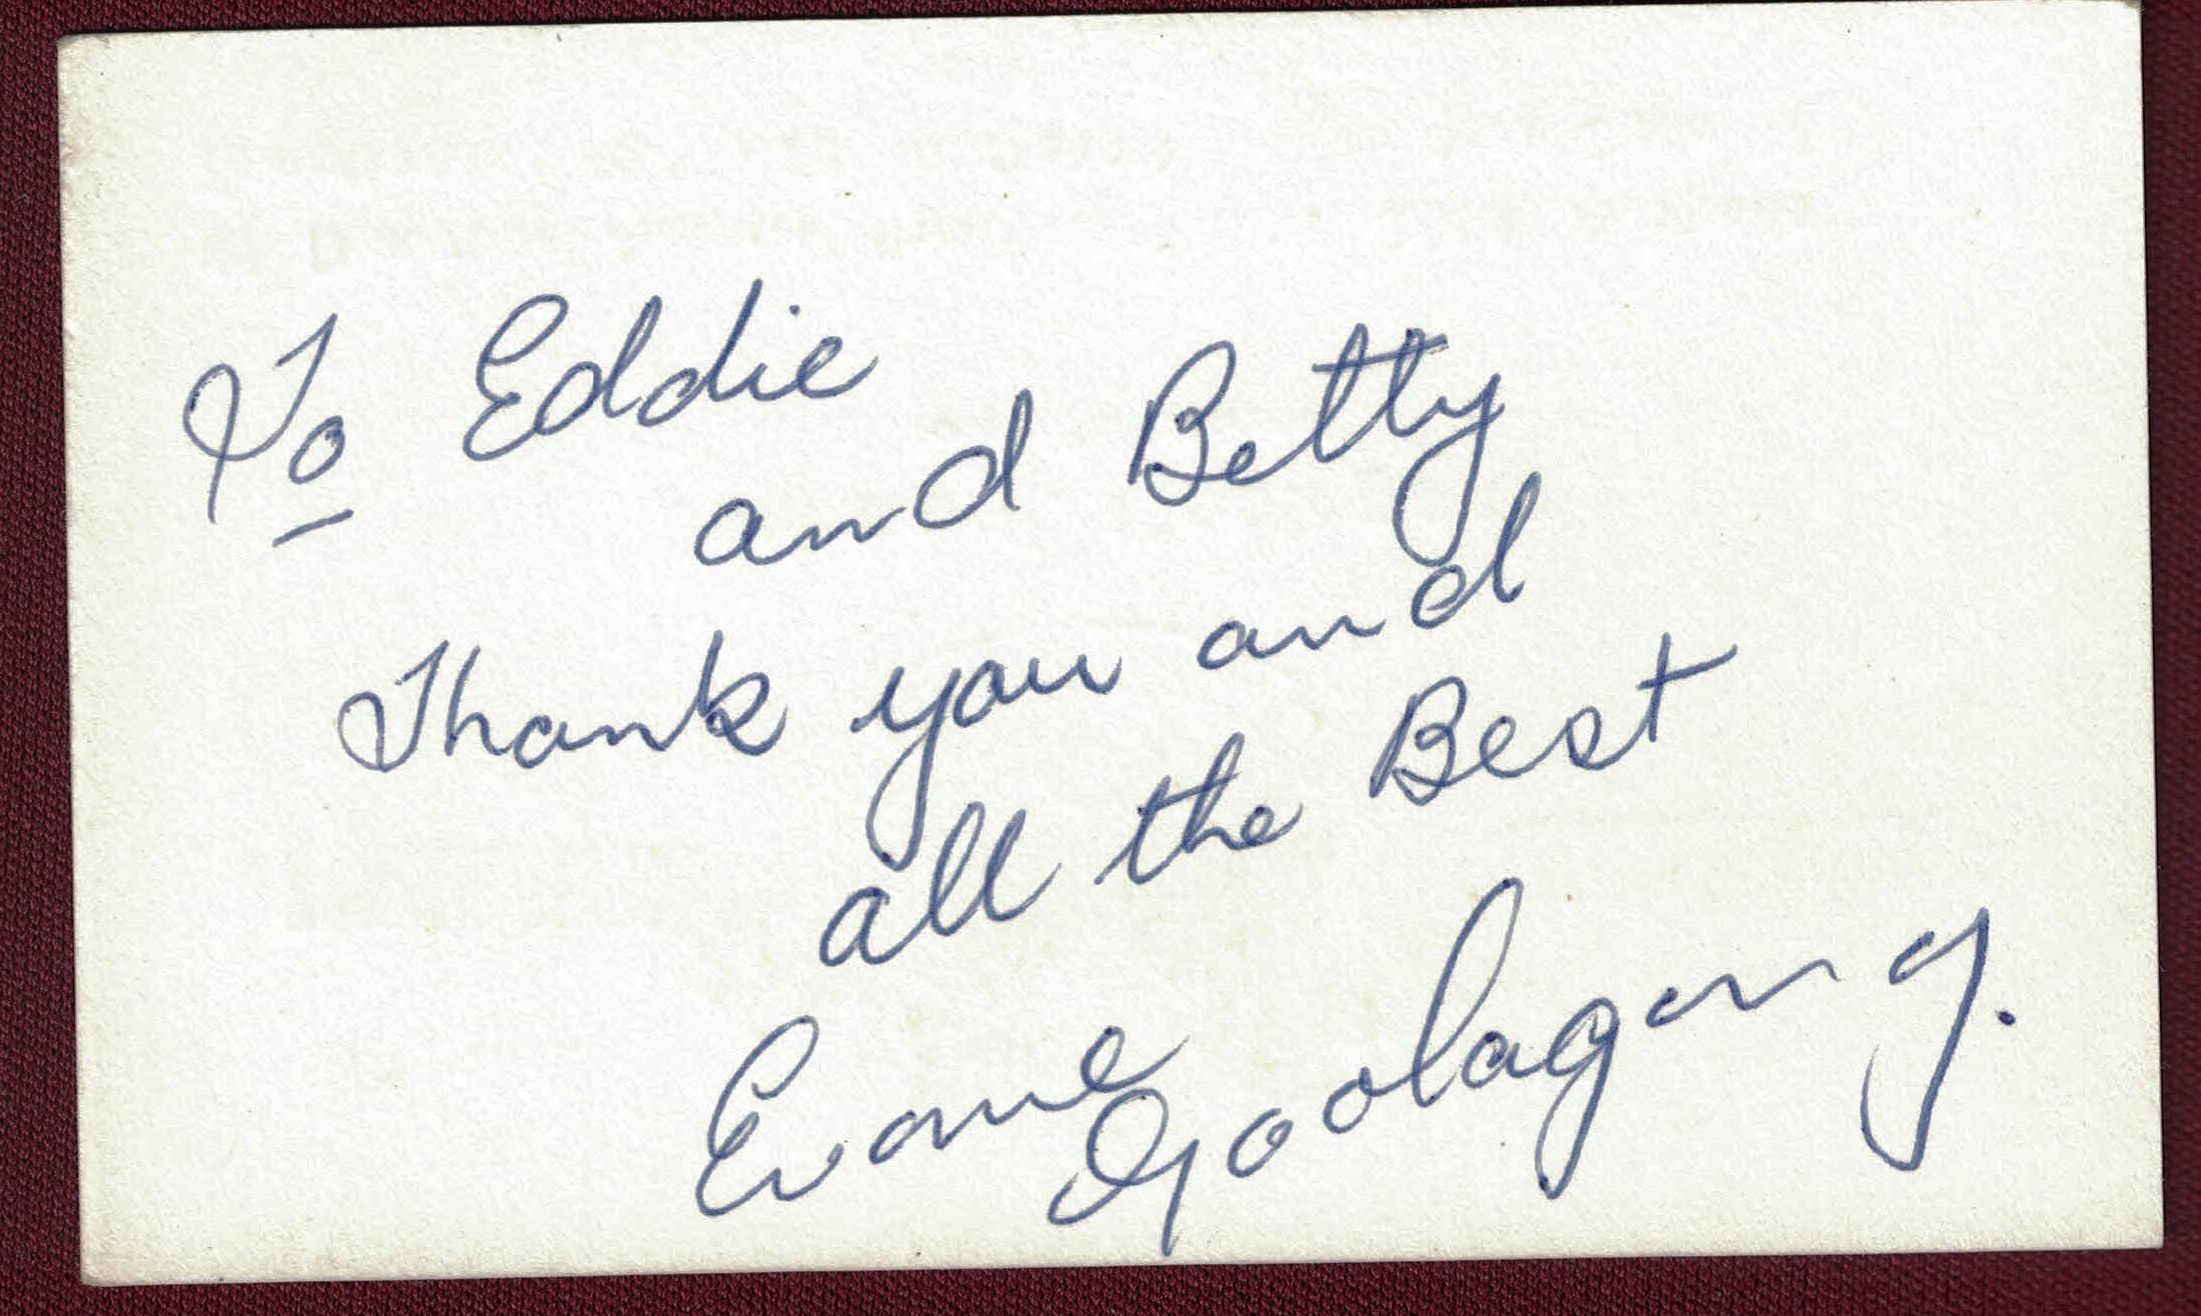 To Eddie
and Betty
Thank you and
all the Best
Evonne
Goolagong.